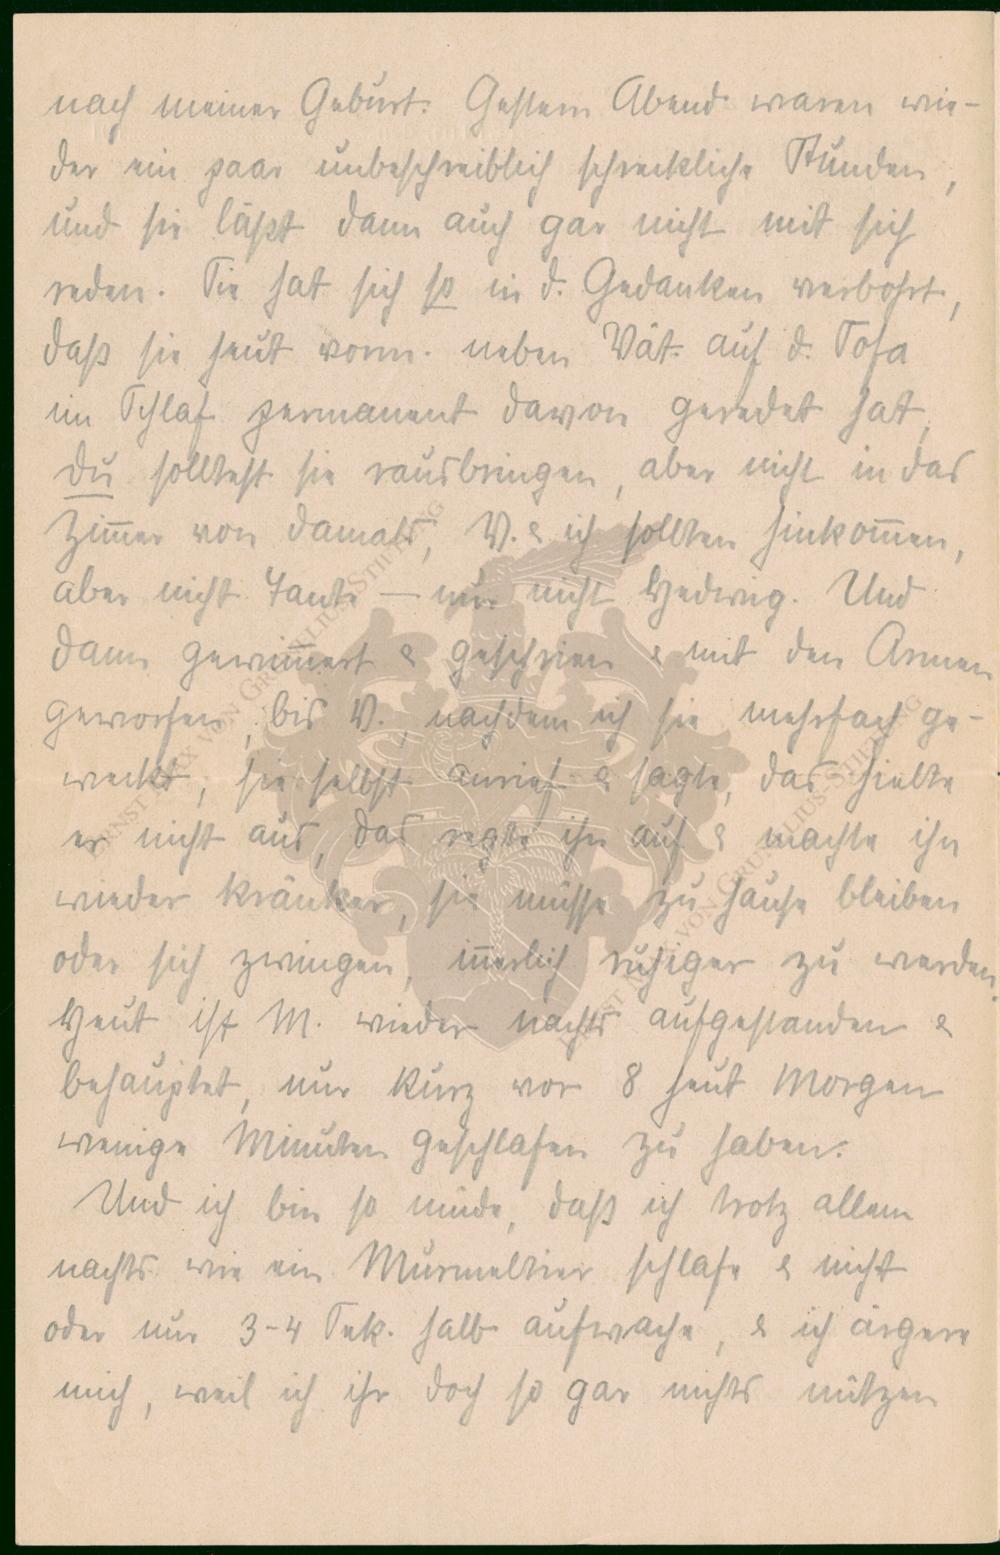 nach meiner Geburt. Gestern Abend waren wie-
der ein paar unbeschreiblich schreckliche Stunden,
und sie läßt dann auch gar nicht mit sich
reden. Sie hat sich so in d. Gedanken verbohrt,
daß sie heut vorm. neben Vat. auf d. Sofa
im Schlaf permanent davon geredet hat,
Du solltest sie rausbringen, aber nicht in das
Zim̅er von damals, V. & ich sollten hinkom̅en,
aber nicht Tante — nur nicht Hedwig. Und
dann gewim̅ert & geschrien & mit den Armen
geworfen, bis V., nachdem ich sie mehrfach ge-
weckt, sie selbst anrief & sagte, das hielte
er nicht aus, das regte ihn auf & machte ihn
wieder kränker, sie müsse zu Hause bleiben
oder sich zwingen, in̅erlich ruhiger zu werden.
Heut ist M. wieder nachts aufgestanden &
behauptet, nur kurz vor 8 heut Morgen
wenige Minuten geschlafen zu haben.
Und ich bin so müde, daß ich trotz allem
nachts wie ein Murmeltier schlafe & nicht
oder nur 3-4 Sek. halb aufwache, & ich ärgere
mich, weil ich ihr doch so gar nichts nützen
ERNST MARX VON GRUNELIUS-STIFTUNG
ERNST MARX VON GRUNELIUS-STIFTUNG